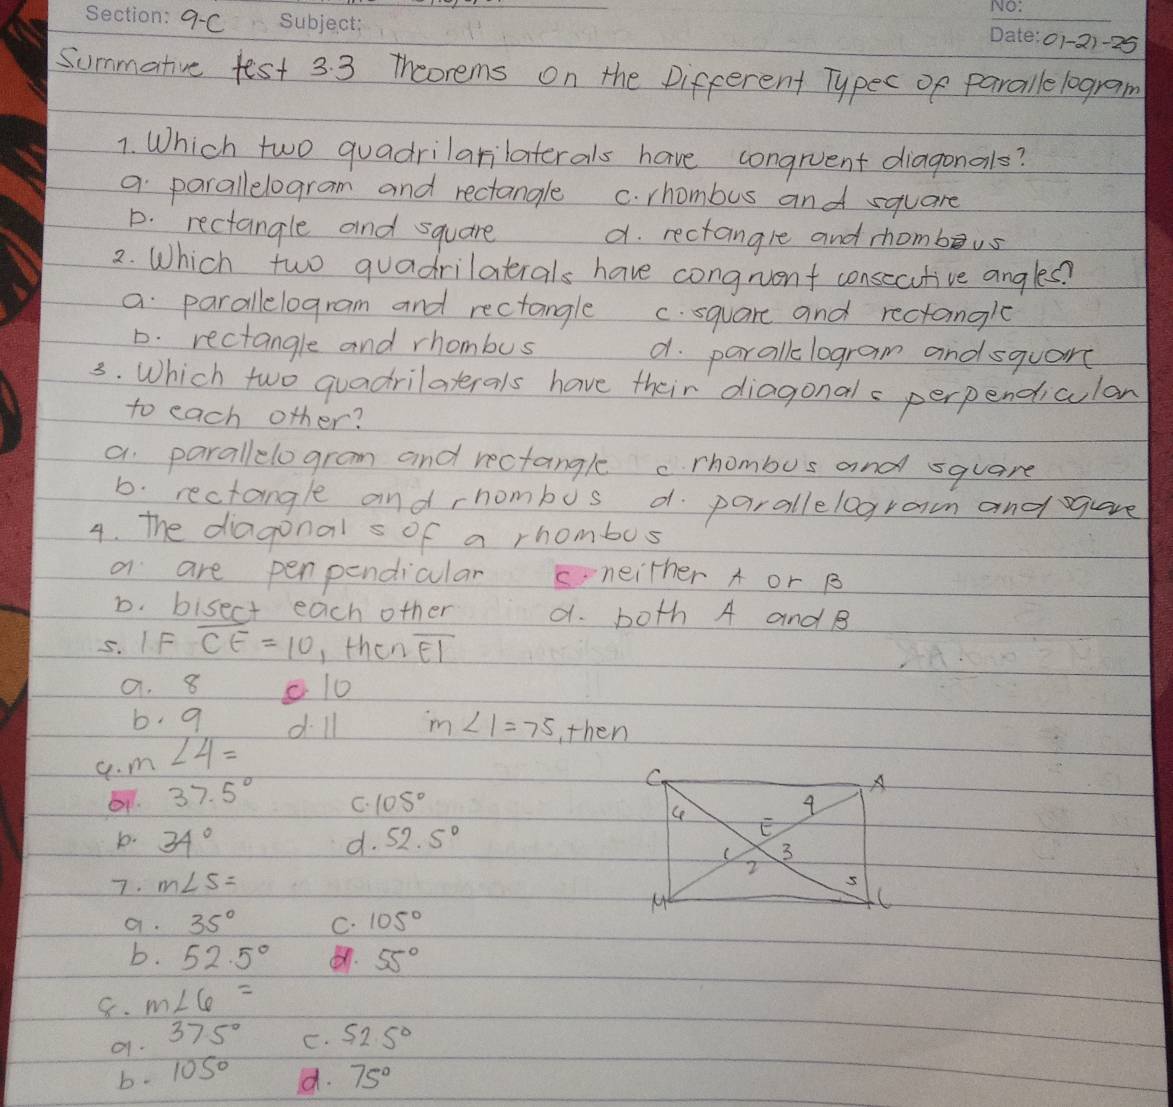 No:
Section: 9-C Subject:
Date: 01-21-25
Summative test 3.3 Theorems on the Different Types of parallelogram
1. Which two quadrilarilaterals have congruent diagonals?
a. parallelogram and rectangle c. rhombus and square
b. rectangle and square d. rectangle and rhombus
2. Which two quadrilaterals have congruent consecutive angles?
a. parallelogram and rectangle c. square and rectangle
b. rectangle and rhombus d. parallelogram and square
3. Which two quadrilaterals have their diagonals perpendicular
to each other?
a. parallelogram and rectangle c. rhombus and square
b. rectangle and rhombus d. parallelogram and square
4. The diagonals of a rhombus
a. are perpendicular c. neither A or B
b. bisect each other d. both A and B
5. IF CE = 10, then EI
a. 8 c. 10
b. 9 d. 11 m∠1 = 75, then
6. m∠4 =
a. 37.5° c. 105°
b. 34° d. 52.5°
7. m∠5 =
a. 35° c. 105°
b. 52.5° d. 55°
8. m∠6 =
a. 37.5° c. 52.5°
b. 105° d. 75°
C A
6 4
E
1 3
2
5
M L